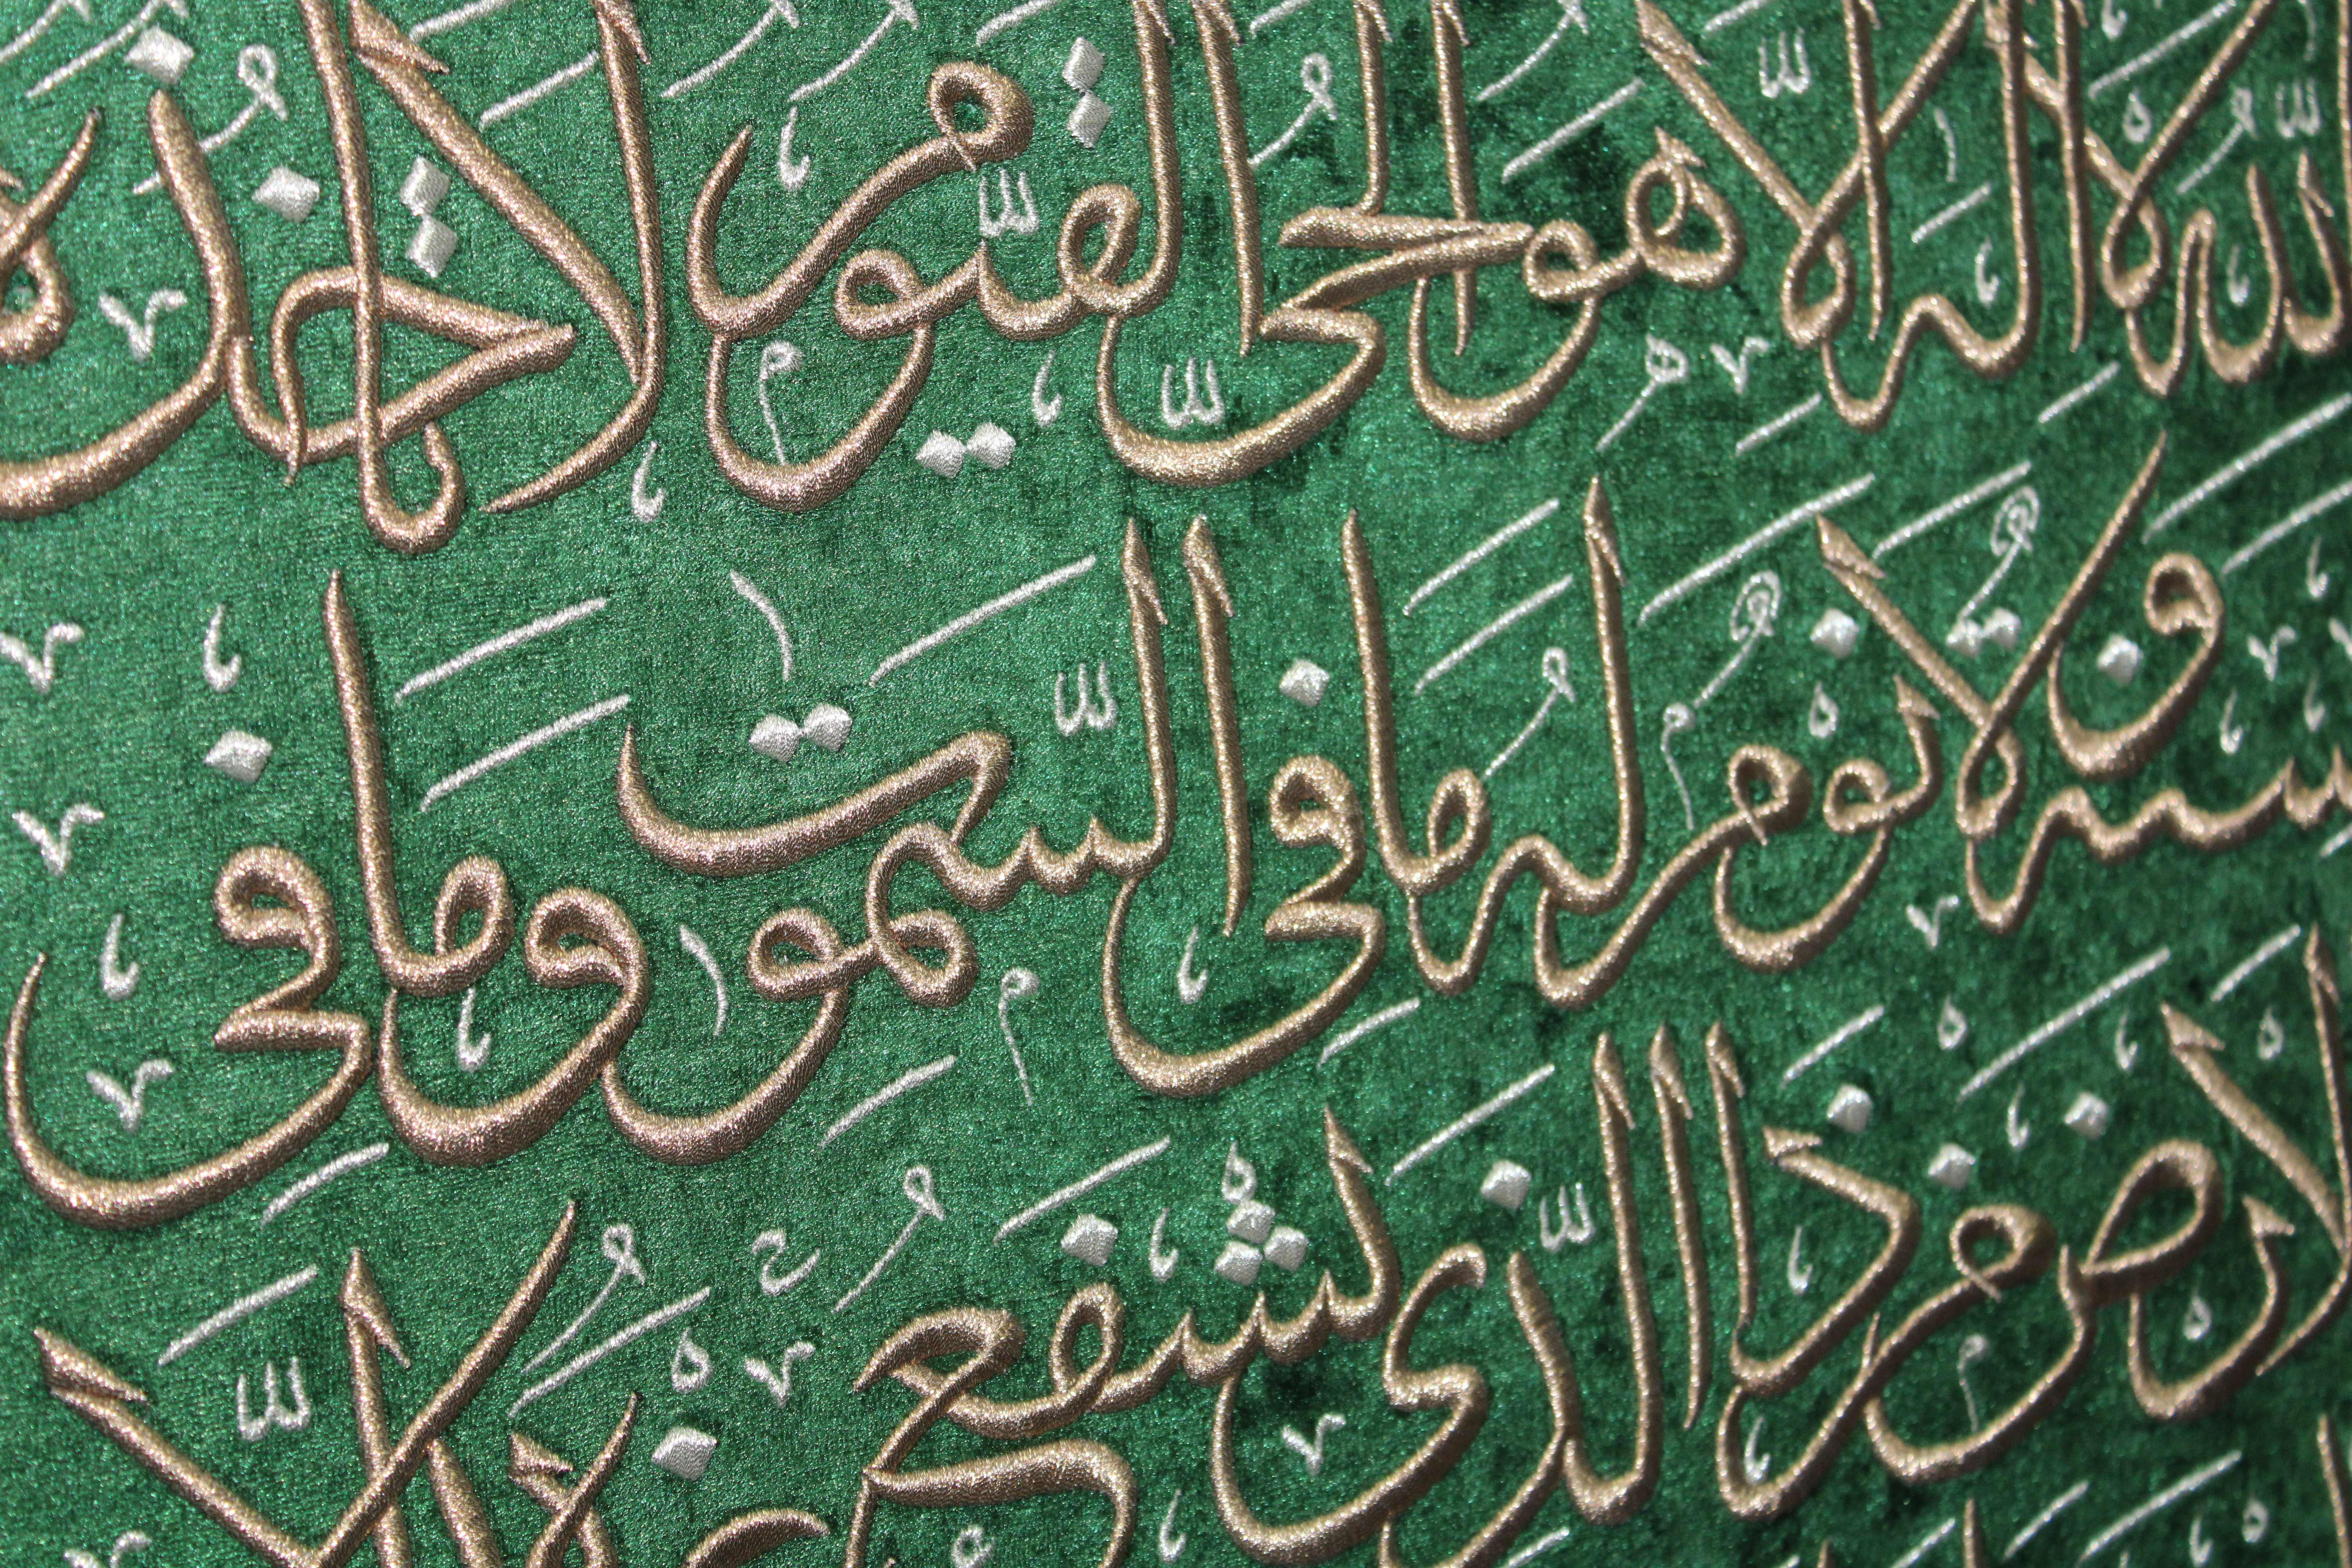 اللَّهُ لَا إِلَٰهَ إِلَّا هُوَ الْحَيُّ الْقَيُّومُ لَا تَأْخُذُهُ
سِنَةٌ وَلَا نَوْمٌ لَهُ مَا فِي السَّمَٰوَٰتِ وَمَا فِي
الْأَرْضِ مَنْ ذَا الَّذِي يَشْفَعُ عِنْدَهُ إِلَّا